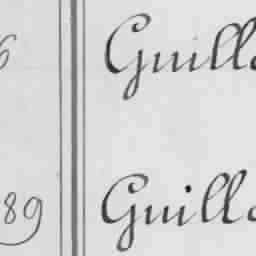 6 Guill
89 Guill